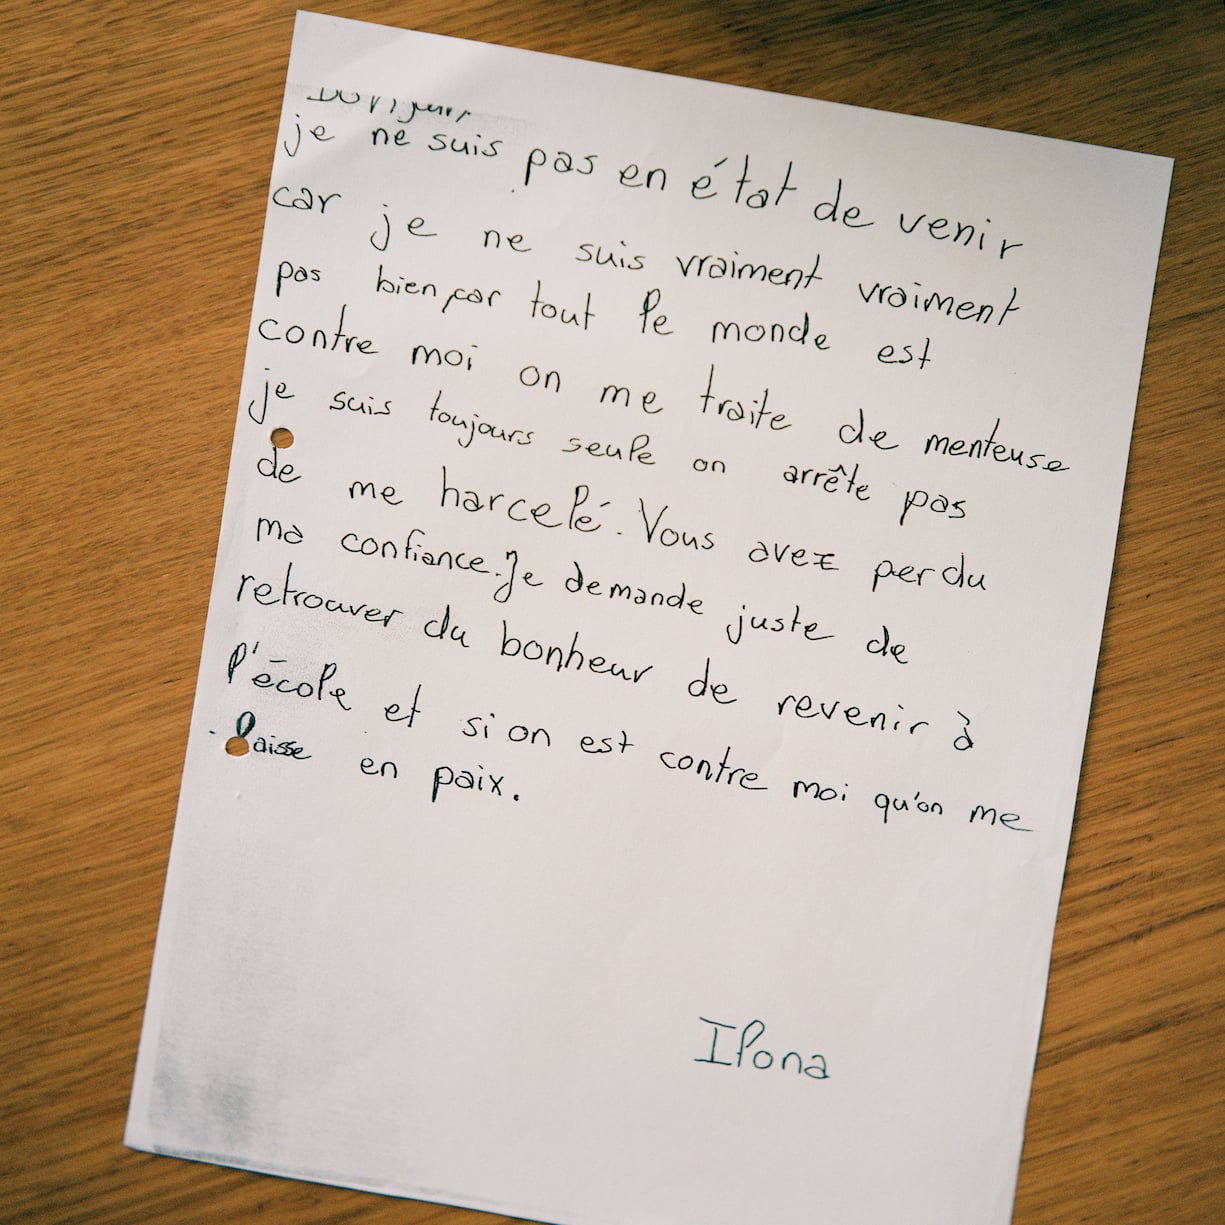 Bonjour,
je ne suis pas en état de venir
car je ne suis vraiment vraiment
pas bien car tout le monde est
contre moi on me traite de menteuse
je suis toujours seule on arrête pas
de me harcelé. Vous avez perdu
ma confiance. Je demande juste de
retrouver du bonheur de revenir à
l'école et si on est contre moi qu'on me
laisse en paix.
Ilona